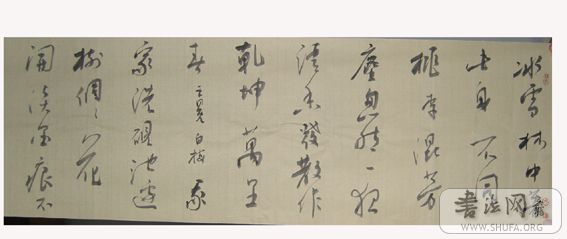 冰雪林中著
此身不同
桃李混芳
塵忽然一夜
清香發散作
乾坤萬里
春王冕白梅我
家洗硯池邊
樹個〻花
開淡墨痕不
書法网
WWW.SHUFA.COM